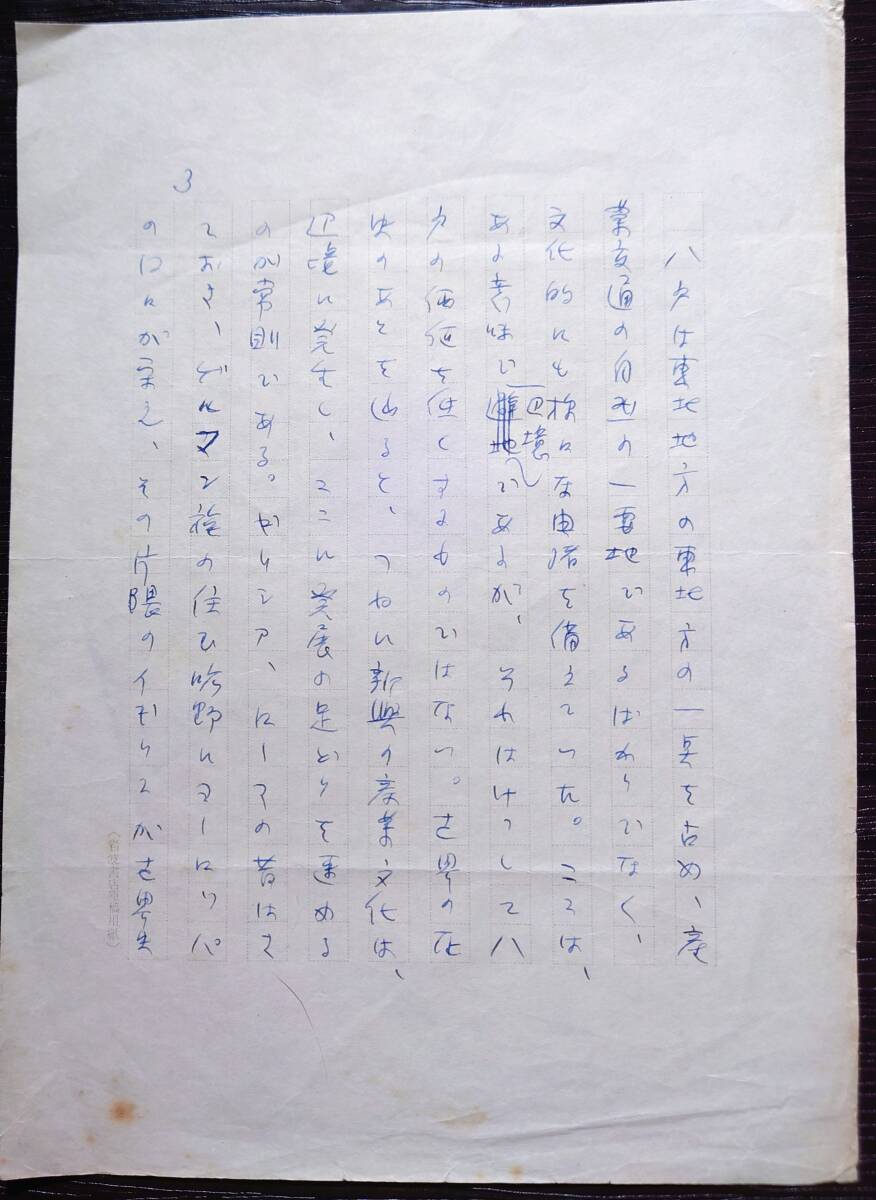 八戸は東北地方の東北方の一点を占め、産
業交通の自然の一要地であるばかりでなく、
文化的にも な由緒を備えていった。ここは、
ある意味で辺境であるが、それはけっして八
戸の価値を低くするものではない。世界の歴
史のあとを辿ると、つねに新興の産業文化は、
辺境に発生し、ここに発展の足どりを速める
のが常則である。ギリシア、ローマの昔はさ
ておき、ゲルマン族の住む 野にヨーロッパ
の が栄え、その片隅のイギリスが世界史
3